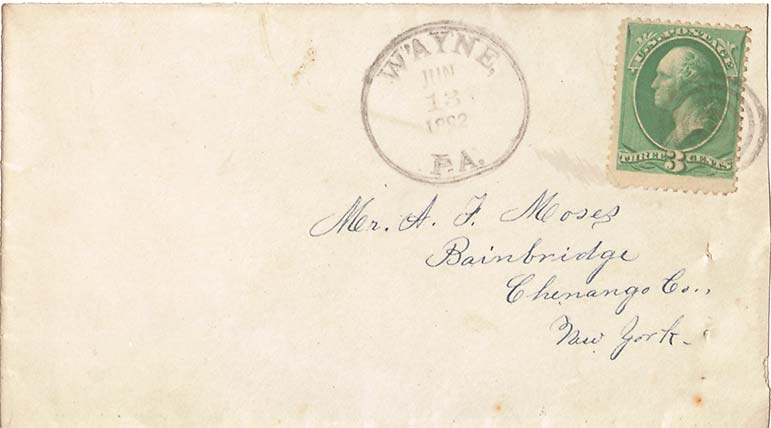 WAYNE,
JUN
13
1882
PA.
U.S. POSTAGE
THREE 3 CENTS
Mr. A. F. Moses
Bainbridge
Chenango Co.,
New York.